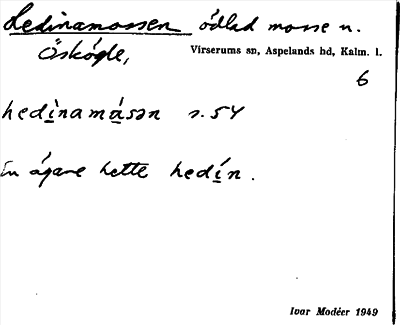 Hedinamossen odlad mosse n.
Öskögle,
Virserums sn, Aspelands hd, Kalm. l.
6
hedinamásən s. 54
En ägare hette hedín.
Ivar Modéer 1949